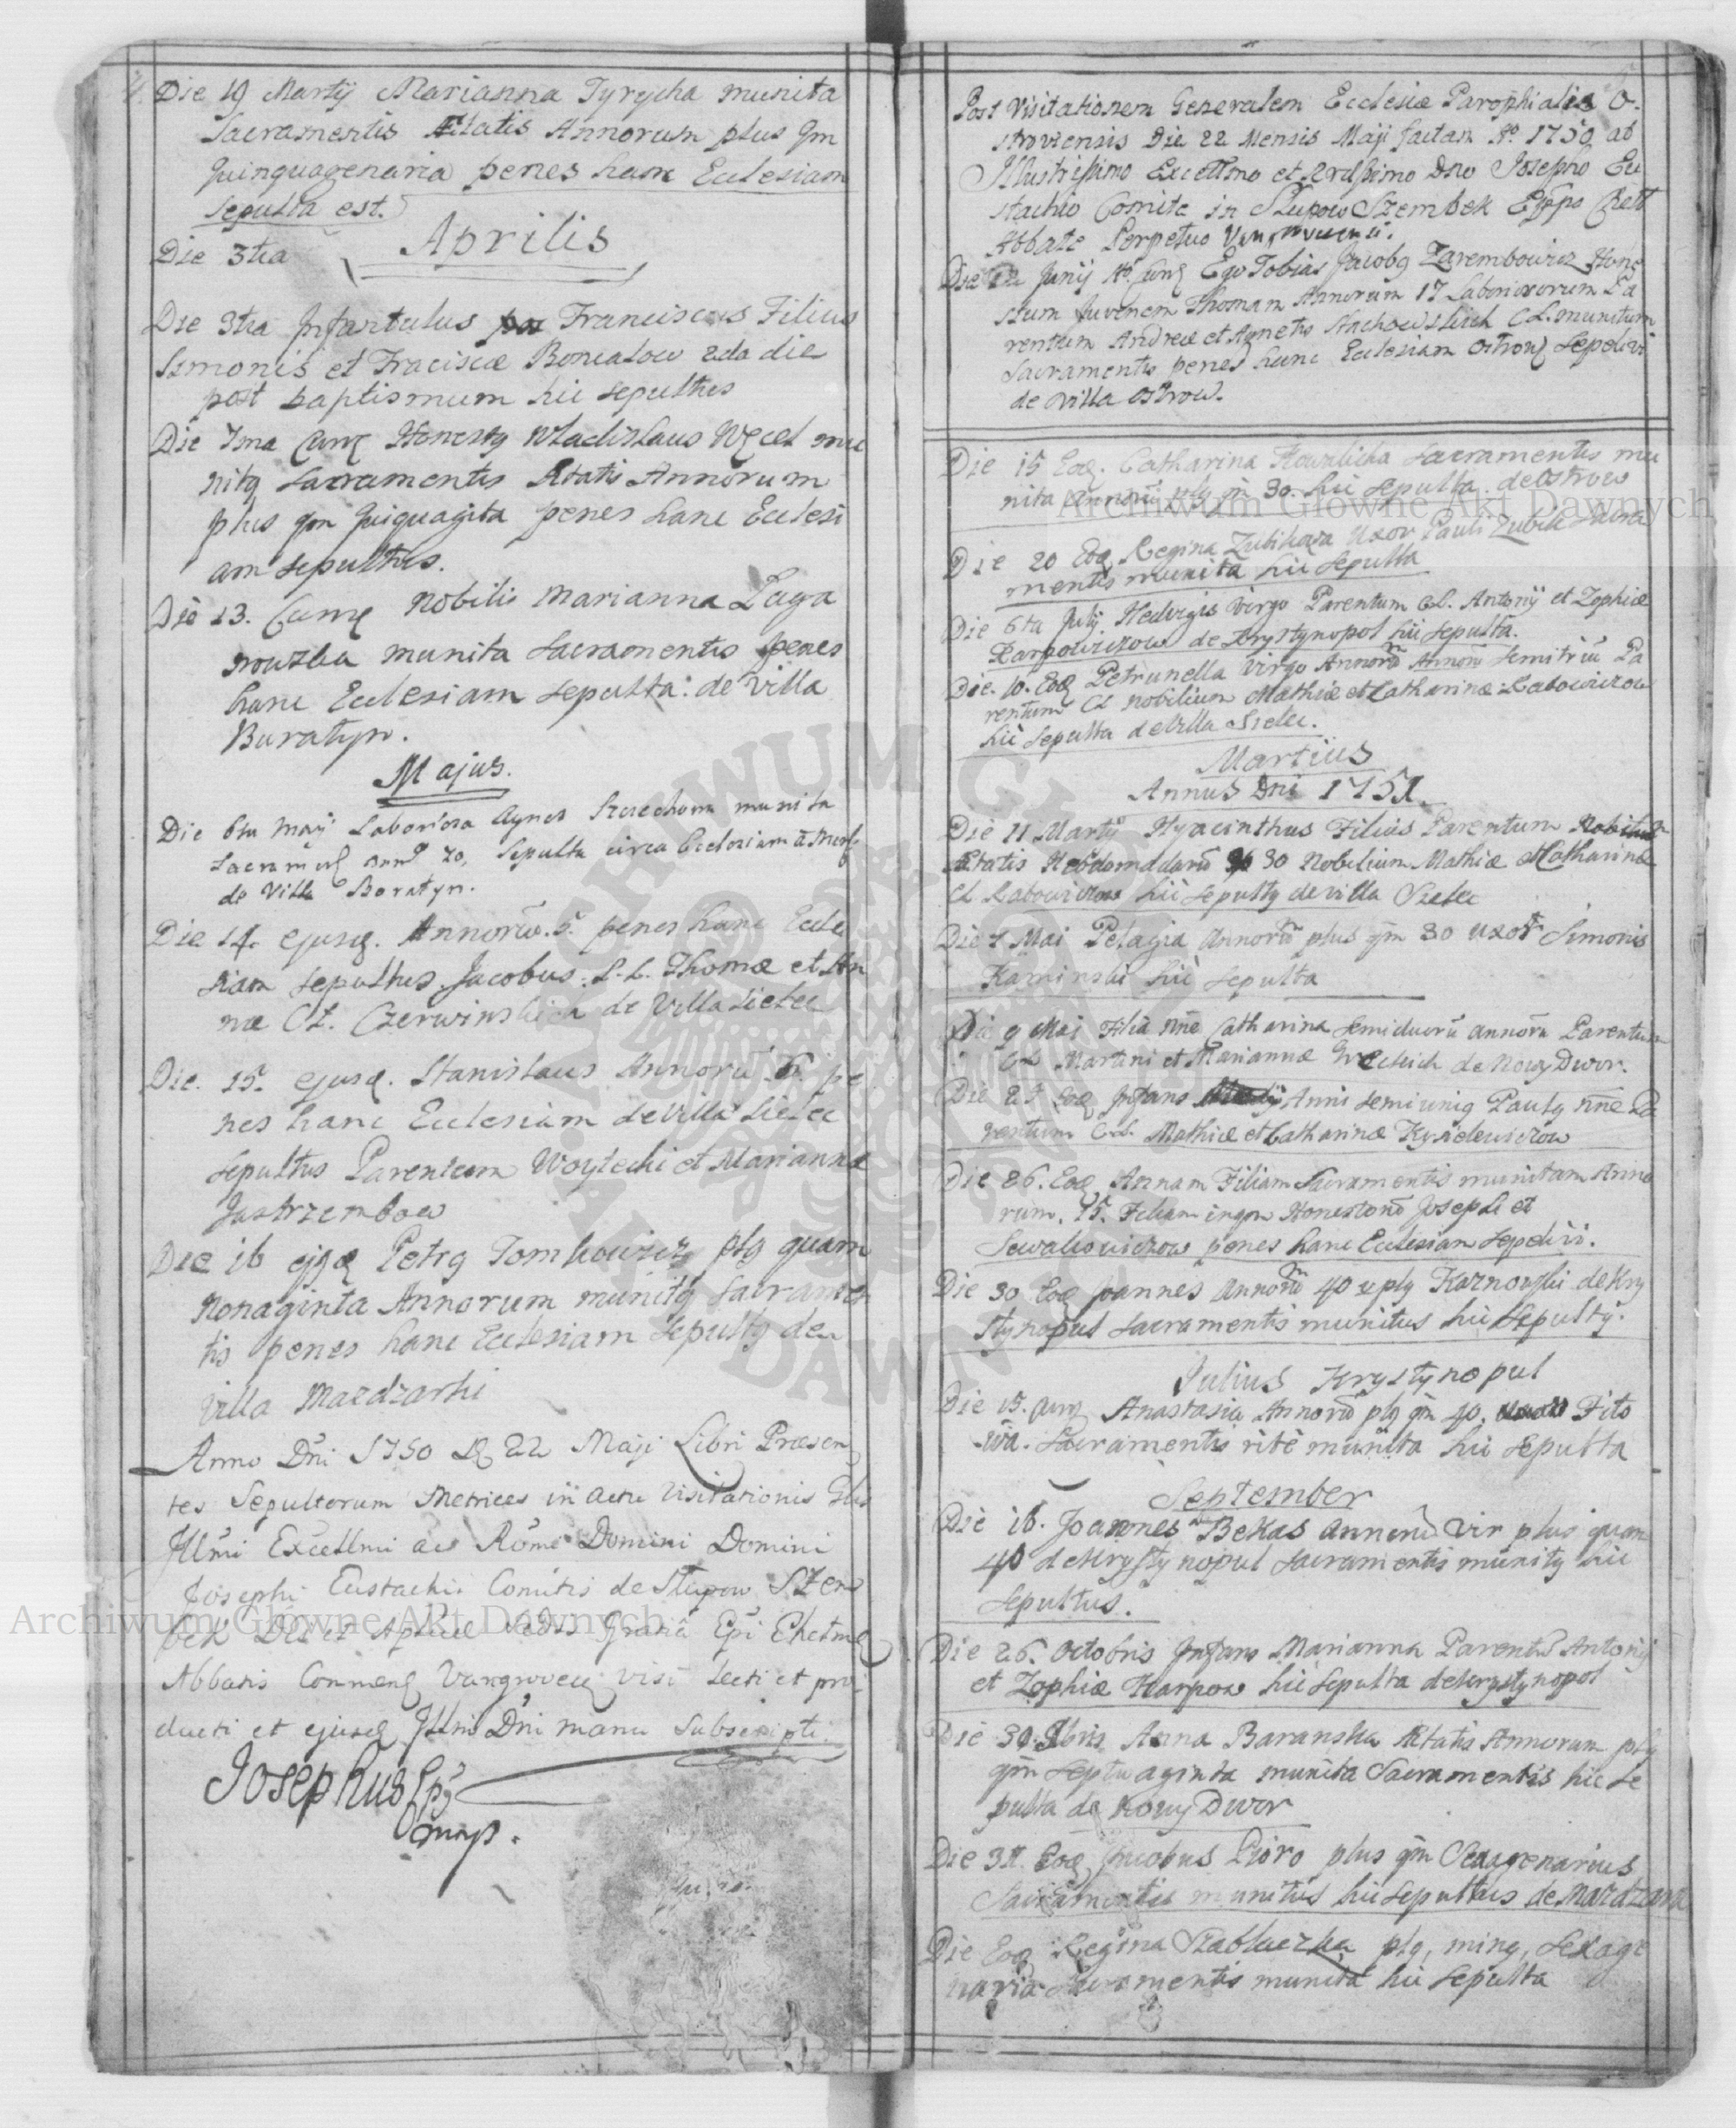 Die 19 Martij Marianna Tyrycha munita
Sacramentis Ætatis Annorum plus qm
Quinquagenaria penes hanc Ecclesiam
sepulta est.
Aprilis
Die 3tia
Die 3tia Infantulus Franciscus Filius
Simonis et Fraciscæ Boncalow 2da die
post baptismum hic sepultus
Die 7ma Honestq Wladislaus Węcel mu
nitq Sacramentis Ætatis Annorum
plus qm Quiquagita penes hanc Ecclesi
am sepultus.
Die 13. Nobilis Marianna Laga
nowzka munita Sacramentis penes
hanc Ecclesiam sepulta: de Villa
Boratyn.
Majus.
Die 6ta Maij Laboriosa Agnes munita
Sacram Ann 70, Sepulta circa Ecclesiam
de Villa Boratyn.
Die 14. ejusq. Annorū. 5. penes hanc Eccle
siam sepultus. Jacobus: L.L. Thomæ et An
næ CL. Czerwinskich de Villa Sielec
Die. 15. ejusq. Stanislaus Annorū. 6. pe
nes hanc Ecclesiam de Villa Sielec
sepultus Parentum Woytechi et Mariannæ
Jastrzembow
Die 16 ejqq Petrq Tomkowicz plq quam
Nonaginta Annorum munitq Sacramen
tis penes hanc Ecclesiam sepultq de
Villa Mazdzarki
Anno Dñi 1750 D 22 Maji Libri Præsen
tes Sepultorum Metrices in actu Visitationis Glis
Jllmi Excellmi ac Rōme Domini Domini
Josephi Eustachii Comitis de Słupow Szem
bek Dei et Aplicæ Sedis Gratia Epi Chelmē
Abbatis Commen Vangrovecē visi Lecti et pro
ducti et ejusq Jllmi Dñi manu Subscripti.
Josephus Eps
mp.
Post Visitationem Generalem Ecclesiæ Parophialis O-
stroviensis Die 22 Mensis Maji factam Ao. 1750 ab
Jllustrissimo Excellmo et Dno Josepho Eu
stachio Comite in Słupow Szembek Eppo Chell
Abbate Perpetuo
Die 12 Junij Ao. Ego Tobias Jacobq Zarembowicz Hone
stum Juvenem Thomam Annorum 17 Laboriosorum Pa
rentum Andreæ et Agnetis Stachowskich CL. munitum
Sacramentis penes hanc Ecclesiam Ostrow Sepelivi
de villa Ostrow.
Die 15 Eoq. Catharina Kowalicha Sacramentis mu
nita annorū plq qm 30. hic sepulta. de Ostrow
Die 20 Eoq Regina Zubikowa Uxor Pauli Zubik Sacra
mentis munita hic sepulta
Die 6ta Julij Hedvigis Virgo Parentum CL. Antonij et Zophiæ
Karpowiczow de Krystynopol hic sepulta.
Die. 10. Eoq Petrunella Virgo Annorū Semitriū Pa
rentum CL Nobilium Mathiæ et Catharinæ Labowiczow
hic sepulta de Villa Sielec.
Martius
Annus Dni 1751
Die 11 Martij Hyacinthus Filius Parentum
Ætatis Hebdomadarū 30 Nobilium Mathiæ et Catharinæ
CL Labowiczow hic sepultq de villa Sielec
Die 7 Mai Pelagia Annorū plus qm 30 uxor Simonis
Kaminski hic sepulta
Die 9 Mai Filia nñe Catharina semiduorū annorū Parentum
CL Martini et Mariannæ de Nowy Dwor.
Die 25 Eoq Infans Anni semiuniq Paulq nñe Pa
rentum CL. Mathiæ et Catharinæ
Die 26. Eoq Annam Filiam Sacramentis munitam Anno
rum. 15. Filiam Honestorū Josephi et
Sewalowiczow penes hanc Ecclesiam sepelivi.
Die 30 Eoq Joannes Annorū 40 plq Karnowski de Kry
stynopol Sacramentis munitus hic sepultq.
Julius Krystynopul
Die 15. Anastasia Annorū plq qm 40. Fito
wa. Sacramentis ritè munita hic sepulta
September
Die 16. Joannes Bekas Annorū Vir plus quam
40 de Krystynopul Sacramentis munitq hic
sepultus.
Die 26. Octobris Infans Marianna Parentū Antonij
et Zophiæ Karpow hic sepulta de Krystynopol
Die 30. Anna Baranska Ætatis Annorum plq
qm Septuaginta munita Sacramentis hic se
pulta de Nowy Dwor
Die 31. Eoq Jacobus Pioro plus qm Sexagenarius
Sacramentis munitus hic sepultus de Mazdzarki
Die Eoq Regina plq, minq, Sexage
naria Sacramentis munita hic sepulta
Archiwum Główne Akt Dawnych
Archiwum Główne Akt Dawnych